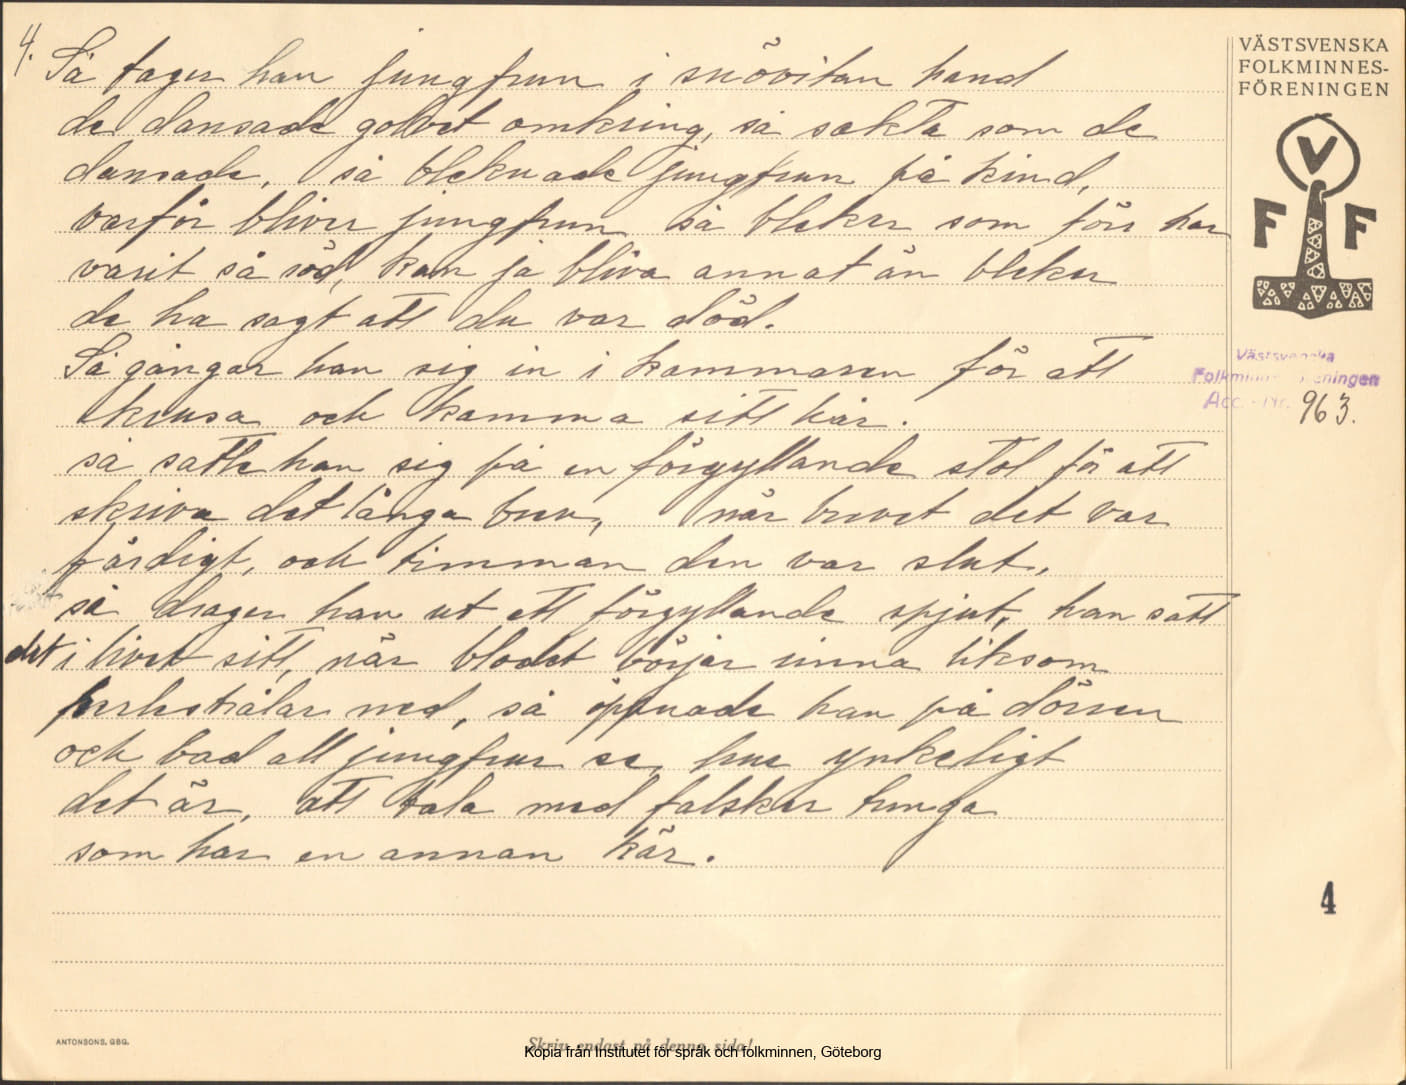 4.
Så tager han jungfrun i snövitan hand
de dansade golvet omkring, så sakta som de
dansade, så bleknade jungfrun på kind,
varför bliver jungfrun så bleker som förr har
varit så röd, kan ja bliva annat än bleker
de ha sagt att du var död.
Så gångar han sig in i kammaren för att
krusa och kamma sitt hår.
så satte han sig på en förgyllande stol för att
skriva det långa brev, när brevet det var
färdigt, och timman den var slut,
så drager han ut ett förgyllande spjut, han satt
det i livet sitt, när blodet börjar rinna liksom
perlestrålar ned, så öppnade han på dörren
och bad all jungfrur se, hur ynkeligt
det är, att tala med falsker tunga
som har en annan kär.
VÄSTSVENSKA
FOLKMINNES-
FÖRENINGEN
V
F F
Västsvenska
Folkminnesföreningen
Acc.-Nr. 963.
4
ANTONSONS, GBG.
Skriv endast på denna sida!
Kopia från Institutet för språk och folkminnen, Göteborg